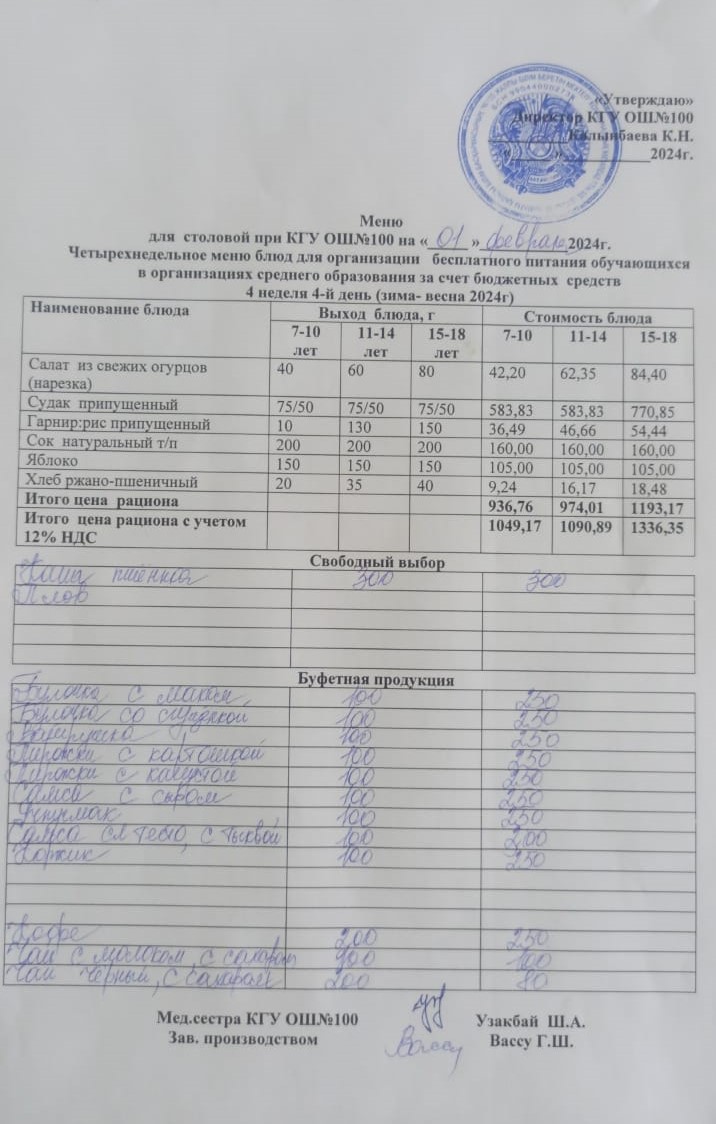 «Утверждаю»
Директор КГУ ОШ№100
__________Калынбаева К.Н.
«_____»______________2024г.
Меню
для столовой при КГУ ОШ№100 на «_01_»_февраля_2024г.
Четырехнедельное меню блюд для организации бесплатного питания обучающихся
в организациях среднего образования за счет бюджетных средств
4 неделя 4-й день (зима- весна 2024г)
Наименование блюда Выход блюда, г Стоимость блюда
7-10 лет 11-14 лет 15-18 лет 7-10 11-14 15-18
Салат из свежих огурцов (нарезка) 40 60 80 42,20 62,35 84,40
Судак припущенный 75/50 75/50 75/50 583,83 583,83 770,85
Гарнир:рис припущенный 10 130 150 36,49 46,66 54,44
Сок натуральный т/п 200 200 200 160,00 160,00 160,00
Яблоко 150 150 150 105,00 105,00 105,00
Хлеб ржано-пшеничный 20 35 40 9,24 16,17 18,48
Итого цена рациона 936,76 974,01 1193,17
Итого цена рациона с учетом 12% НДС 1049,17 1090,89 1336,35
Свободный выбор
Каша пшенная 300 300
Плов
Буфетная продукция
Булочка с маком 100 250
Булочка со сгущенкой 100 250
Ватрушка 100 250
Пирожки с картошкой 100 250
Пирожки с капустой 100 250
Самса с сыром 100 250
100 250
Самса сл тесто, с тыквой 100 200
Коржик 100 250
Кофе 200 250
Чай с молоком, с сахаром 100
Чай черный, с сахаром 200 80
Мед.сестра КГУ ОШ№100 Узакбай Ш.А.
Зав. производством Вассу Вассу Г.Ш.